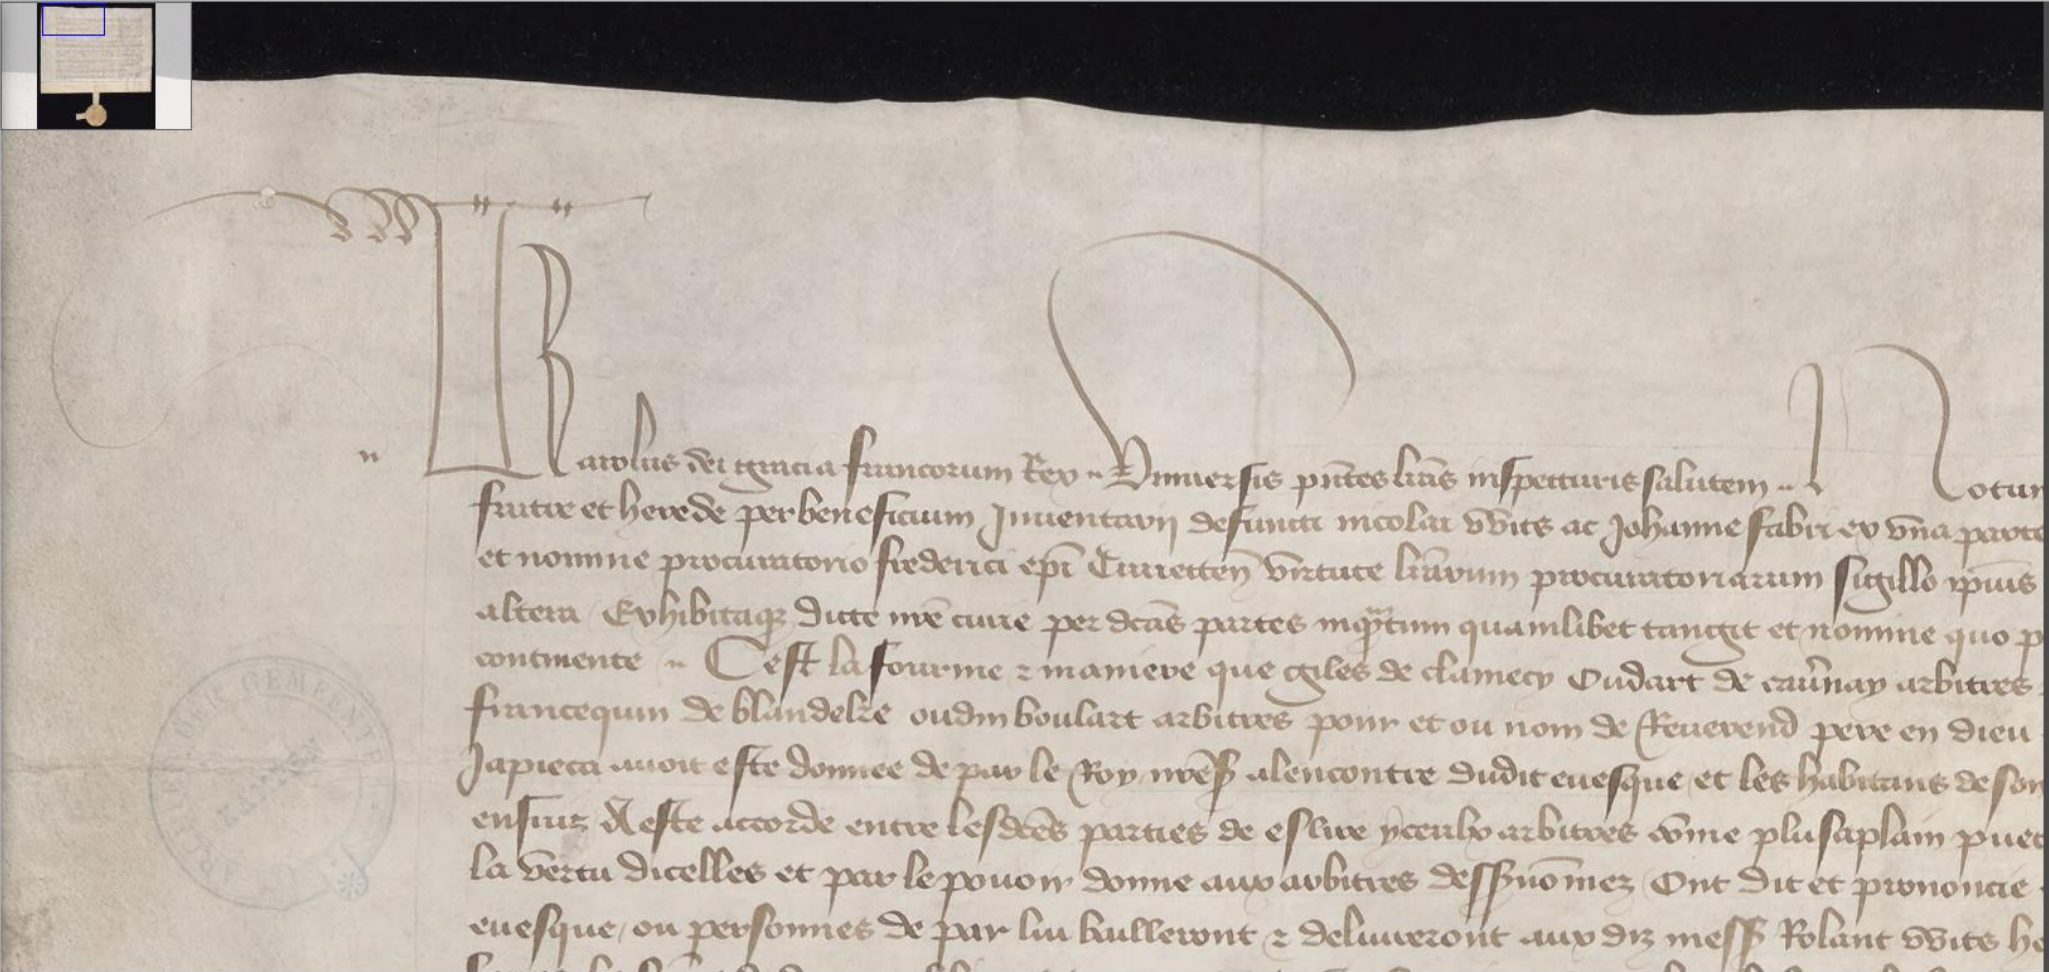 Karolus dei gracia francorum Rex Universis pñtes lras inspecturis salutem Notum
fratre et herede per beneficium Inventarii defuncti nicolai Wits ac Johanne fabri ex una parte
et nomine procuratorio frederici epi Traiecten virtute lrarum procuratoriarum sigillo ipius
altera Exhibitaq; dicte nre curie per dcas partes inqntum quamlibet tangit et nomine quo p
continente Cest la fourme z maniere que giles de clamecy Oudart de
francequin de blandelze oudin boulart arbitres pour et ou nom de Reverend pere en dieu
Japieca avoit este donnee de par le Roy nres alencontre dudit evesque et les habitans de son
ensuiz A este accorde entre lesdces parties de eslire yceulx arbitres come plusaplain puet
la vertu dicelles et par le pouoir donne aux arbitres dessnomez Ont dit et prononcie
evesque ou personnes de par lui bailleront z delivreront aux diz mess Rolant Wits he
GEMEENTE